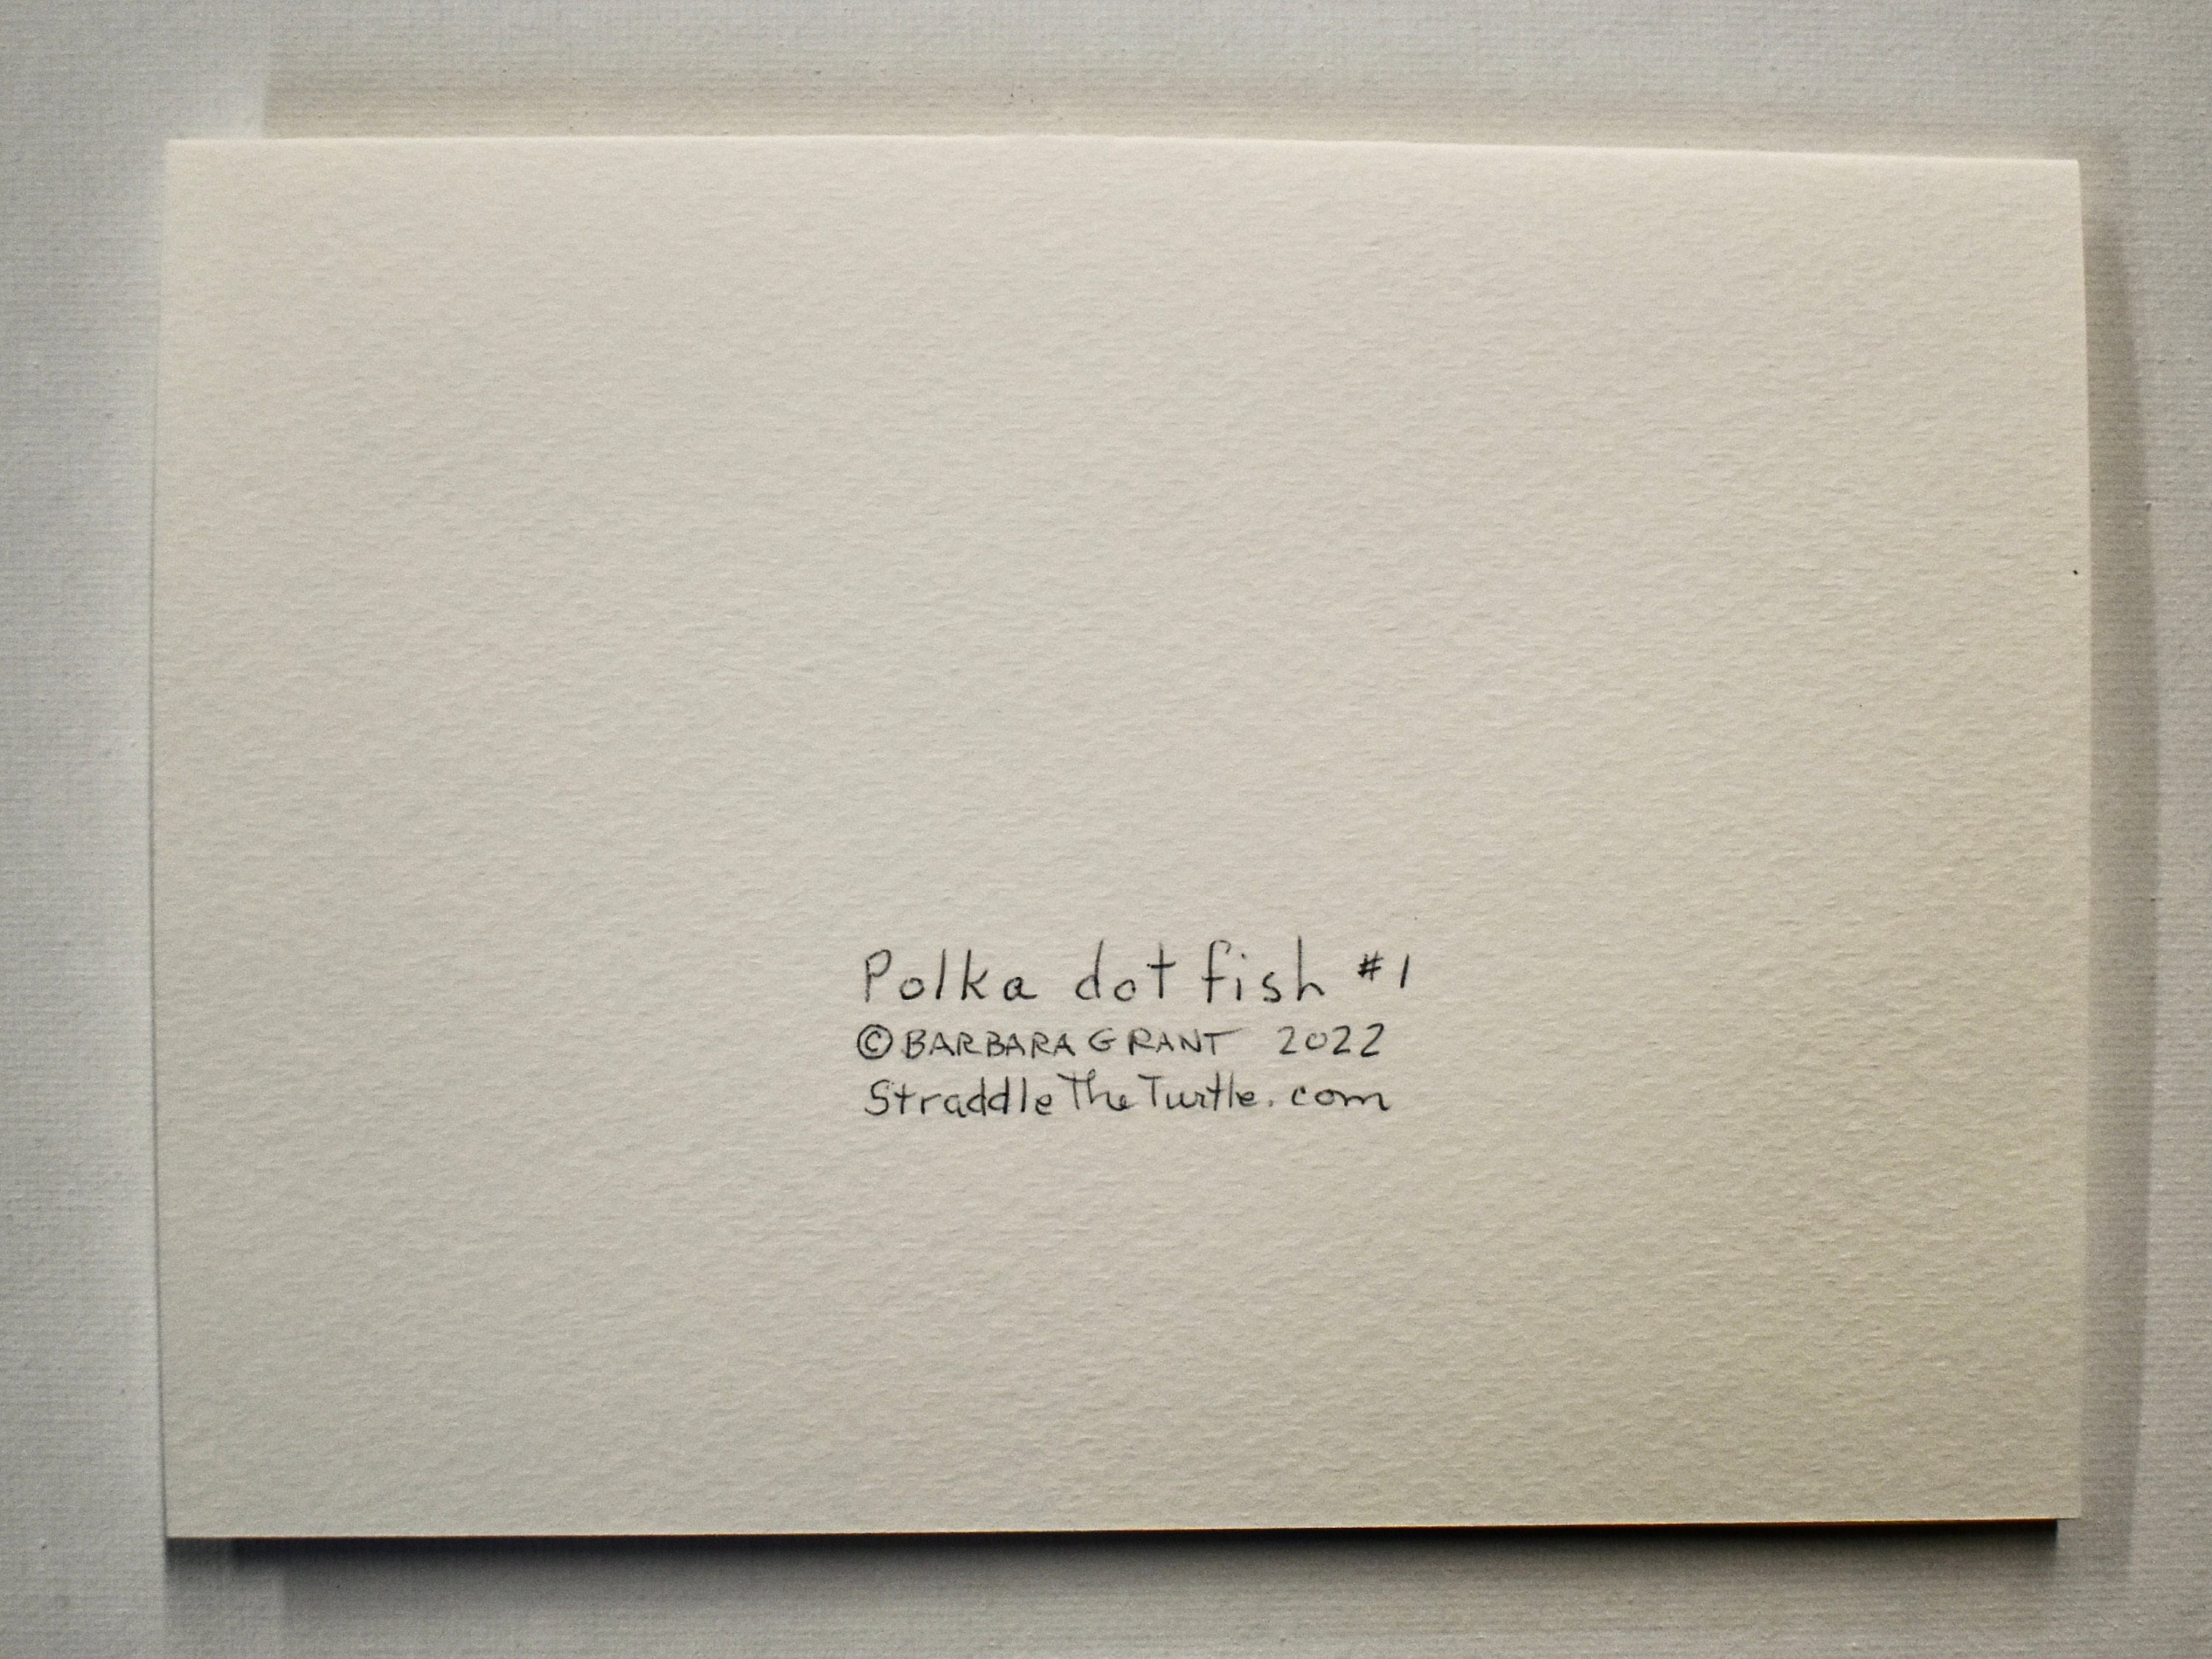 Polka dot fish #1
© BARBARA GRANT 2022
StraddleTheTurtle.com